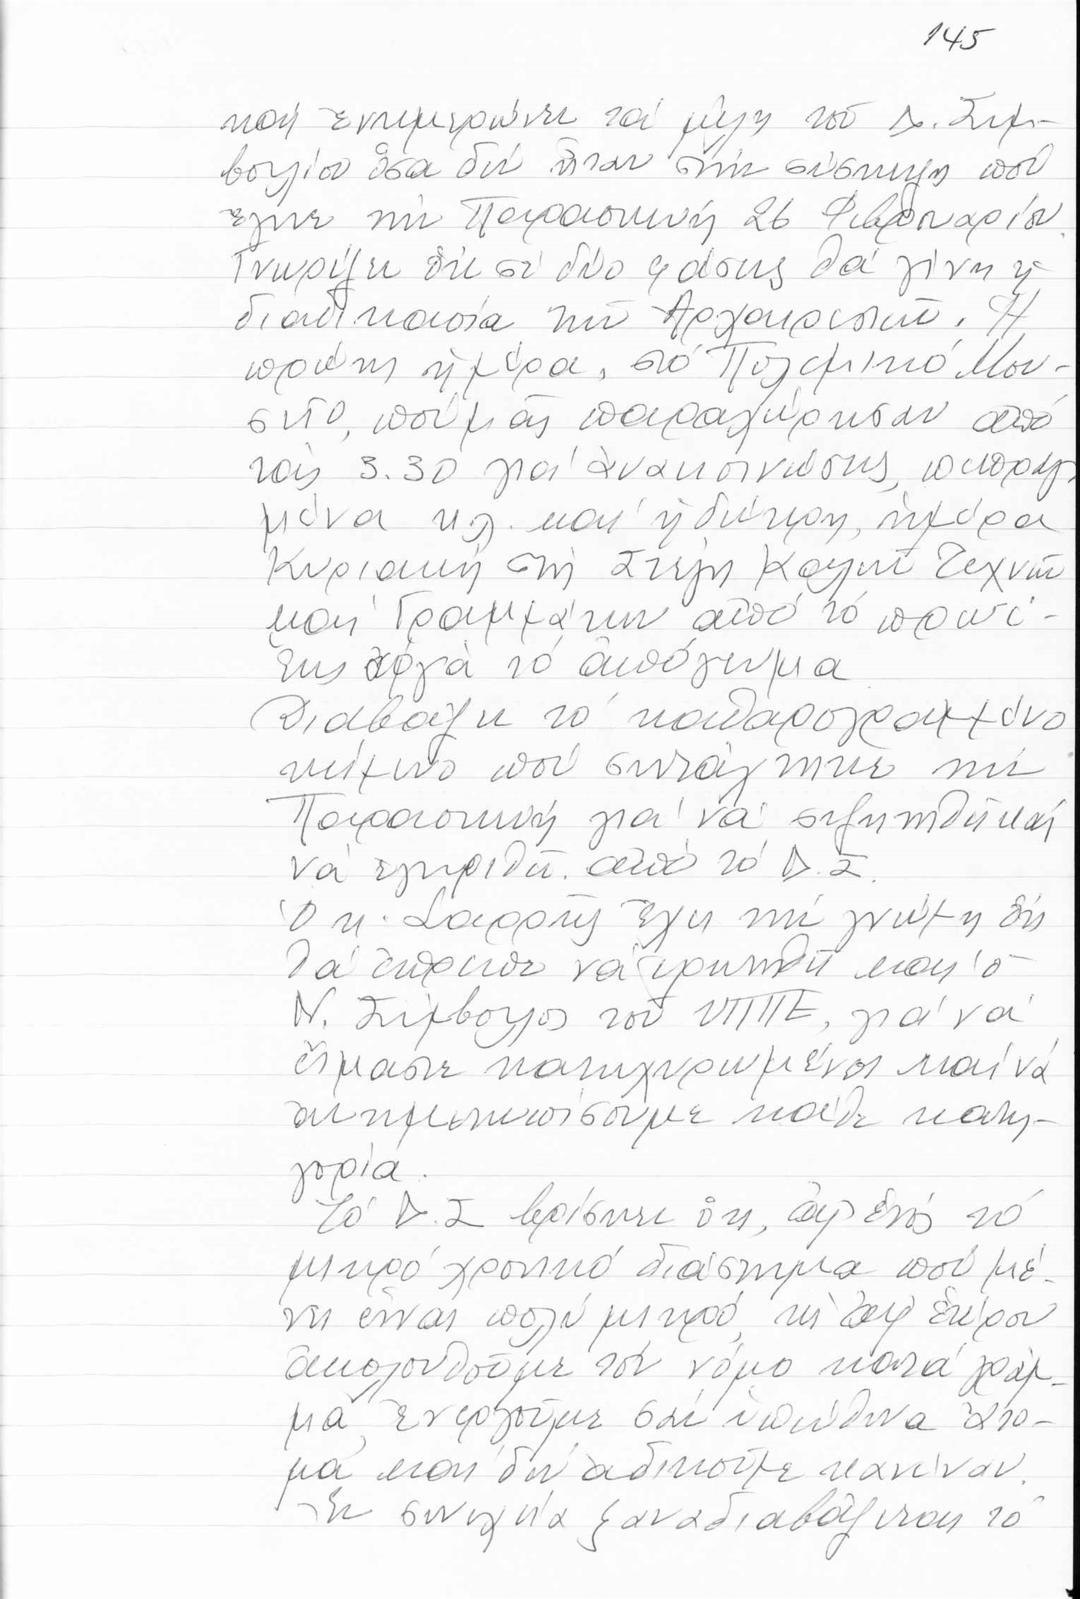 145
καί ἐνημερώνει τά μέλη τοῦ Δ. Συμ-
βουλίου ὅσα δέν ἦταν στήν σύσκεψη πού
ἔγινε τήν Παρασκευή 26 Φεβρουαρίου.
Γνωρίζει ὅτι σέ δύο φάσεις θά γίνη ἡ
διαδικασία τῶν Ἀρχαιρεσιῶν. Ἡ
πρώτη ἡμέρα, στό Πολεμικό Μου-
σεῖο, πού μᾶς παραχώρησαν ἀπό
τάς 3.30 γιά ἀνακοινώσεις, πεπραγ-
μένα κλ. καί ἡ δεύτερη, ἡμέρα
Κυριακή στή Στέγη Καλῶν Τεχνῶν
καί Γραμμάτων ἀπό τό πρωί-
ἕως ἀργά τό ἀπόγευμα
Διαβάζει τό καθαρογραμμένο
κείμενο πού συντάχτηκε τήν
Παρασκευή γιά νά συζητηθῆ καί
νά ἐγκριθῆ ἀπό τό Δ.Σ.
Ὁ κ. Σαρρῆς ἔχει τήν γνώμη ὅτι
θά ἔπρεπε νά ἐρωτηθῆ καί ὁ
Ν. Σύμβουλος τοῦ ΥΠΠΕ, γιά νά
εἴμαστε κατοχυρωμένοι καί νά
ἀντιμετωπίσουμε κάθε κατη-
γορία.
Τό Δ.Σ βρίσκει ὅτι, ἀφ' ἑνός τό
μικρό χρονικό διάστημα πού μέ-
νει εἶναι πολύ μικρό, κι ἀφ' ἑτέρου
ἀκολουθοῦμε τόν νόμο κατά γράμ-
μα, ἐνεργοῦμε σάν ὑπεύθυνα ἄτο-
μα καί δέν ἀδικοῦμε κανέναν.
Ἐν συνεχεία ξαναδιαβάζεται τό